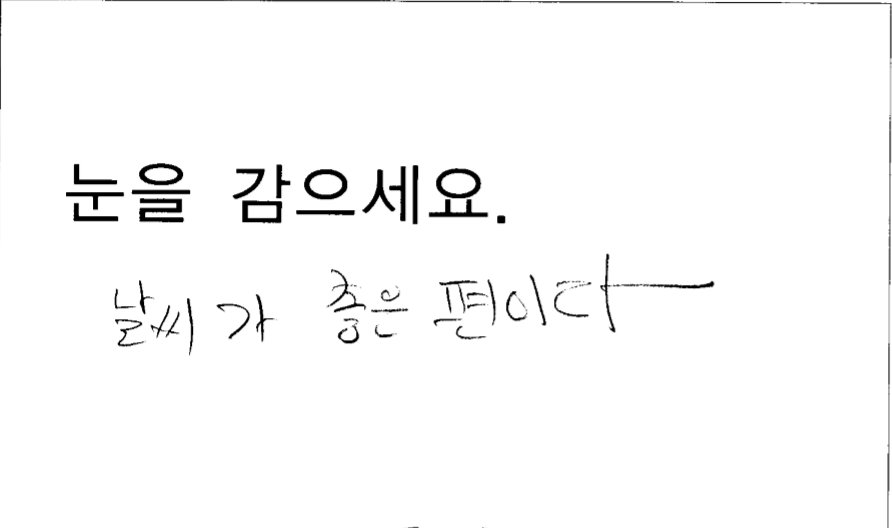 눈을 감으세요.
날씨가 좋은 편이다